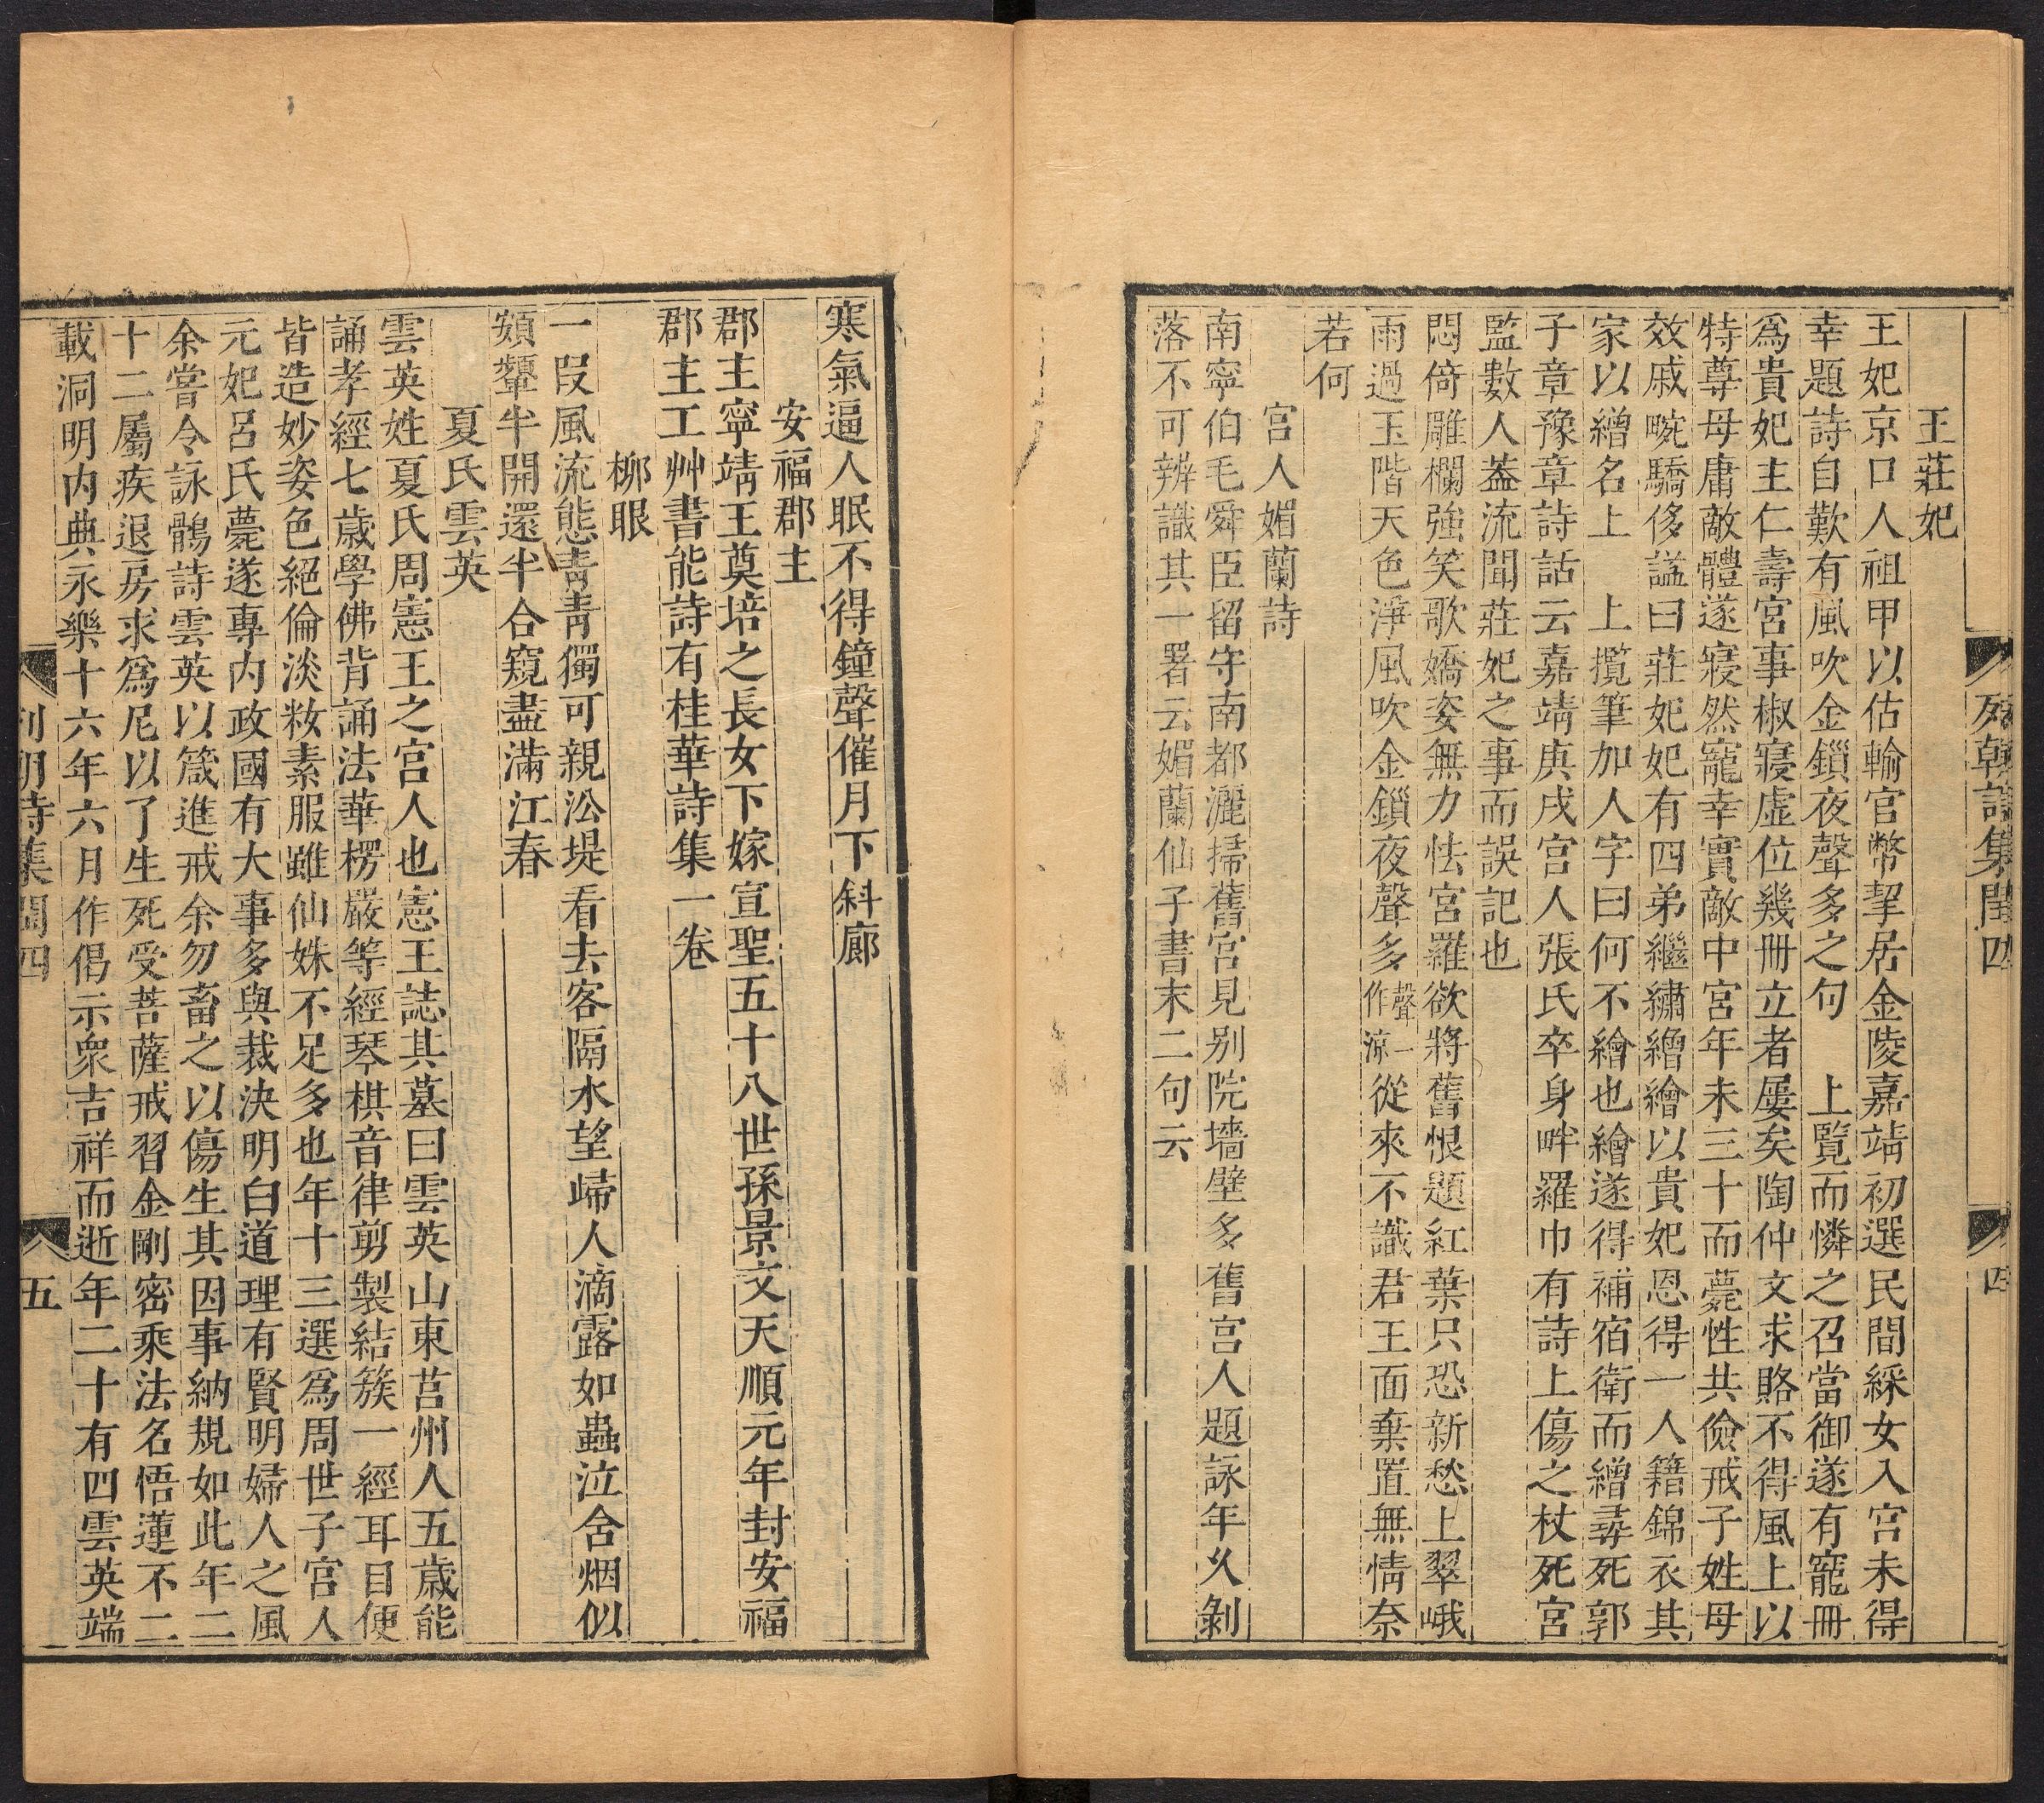 列朝詩集閏四
四
王莊妃
王妃京口人祖甲以估輸官幣挈居金陵嘉靖初選民間綵女入宮未得
幸題詩自歎有風吹金鎖夜聲多之句　上覽而憐之召當御遂有寵冊
爲貴妃主仁壽宮事椒寢虛位幾冊立者屢矣陶仲文求賂不得風上以
特尊母庸敵體遂寢然寵幸實敵中宮年未三十而薨性共儉戒子姓母
效戚畹驕侈諡曰莊妃妃有四弟繼繡繒繪以貴妃恩得一人籍錦衣其
家以繒名上　上攬筆加人字曰何不繪也繪遂得補宿衛而繒尋死郭
子章豫章詩話云嘉靖庚戌宮人張氏卒身畔羅巾有詩上傷之杖死宮
監數人葢流聞莊妃之事而誤記也
悶倚雕欄強笑歌嬌姿無力怯宮羅欲將舊恨題紅葉只恐新愁上翠峨
雨過玉階天色淨風吹金鎖夜聲多聲一作涼從來不識君王面棄置無情奈
若何
宮人媚蘭詩
南寧伯毛舜臣留守南都灑掃舊宮見别院墻壁多舊宮人題詠年久剝
落不可辨識其一署云媚蘭仙子書末二句云
寒氣逼人眠不得鐘聲催月下斜廊
安福郡主
郡主寧靖王奠培之長女下嫁宣聖五十八世孫景文天順元年封安福
郡主工艸書能詩有桂華詩集一卷
柳眼
一叚風流態靑靑獨可親㳂堤看去客隔水望歸人滴露如蟲泣含烟似
頞顰半開還半合窺盡滿江春
夏氏雲英
雲英姓夏氏周憲王之宮人也憲王誌其墓曰雲英山東莒州人五歲能
誦孝經七歲學佛背誦法華楞嚴等經琴棋音律剪製結簇一經耳目便
皆造妙姿色絕倫淡粧素服雖仙姝不足多也年十三選爲周世子宮人
元妃呂氏薨遂專内政國有大事多與裁決明白道理有賢明婦人之風
余嘗令詠鷳詩雲英以箴進戒余勿畜之以傷生其因事納規如此年二
十二屬疾退房求爲尼以了生死受菩薩戒習金剛密乘法名悟蓮不二
載洞明内典永樂十六年六月作偈示衆吉祥而逝年二十有四雲英端
列朝詩集閏四
五